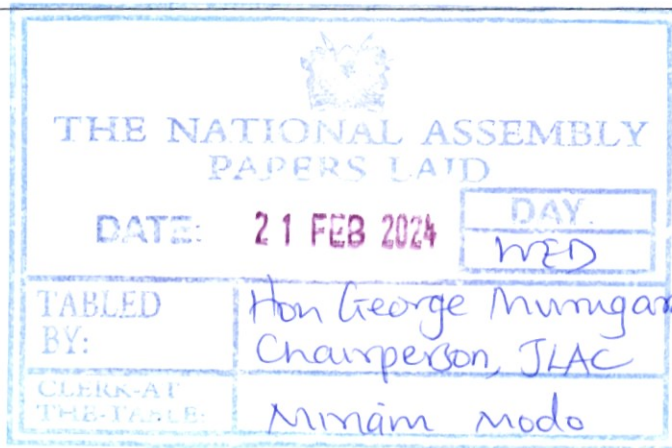 THE NATIONAL ASSEMBLY
PAPERS LAID
DATE: 21 FEB 2024
DAY.
WED
TABLED BY:
Hon George Murugar
Chairperson, JLAC
CLERK-AT
THE-TABLE:
Miriam Modo